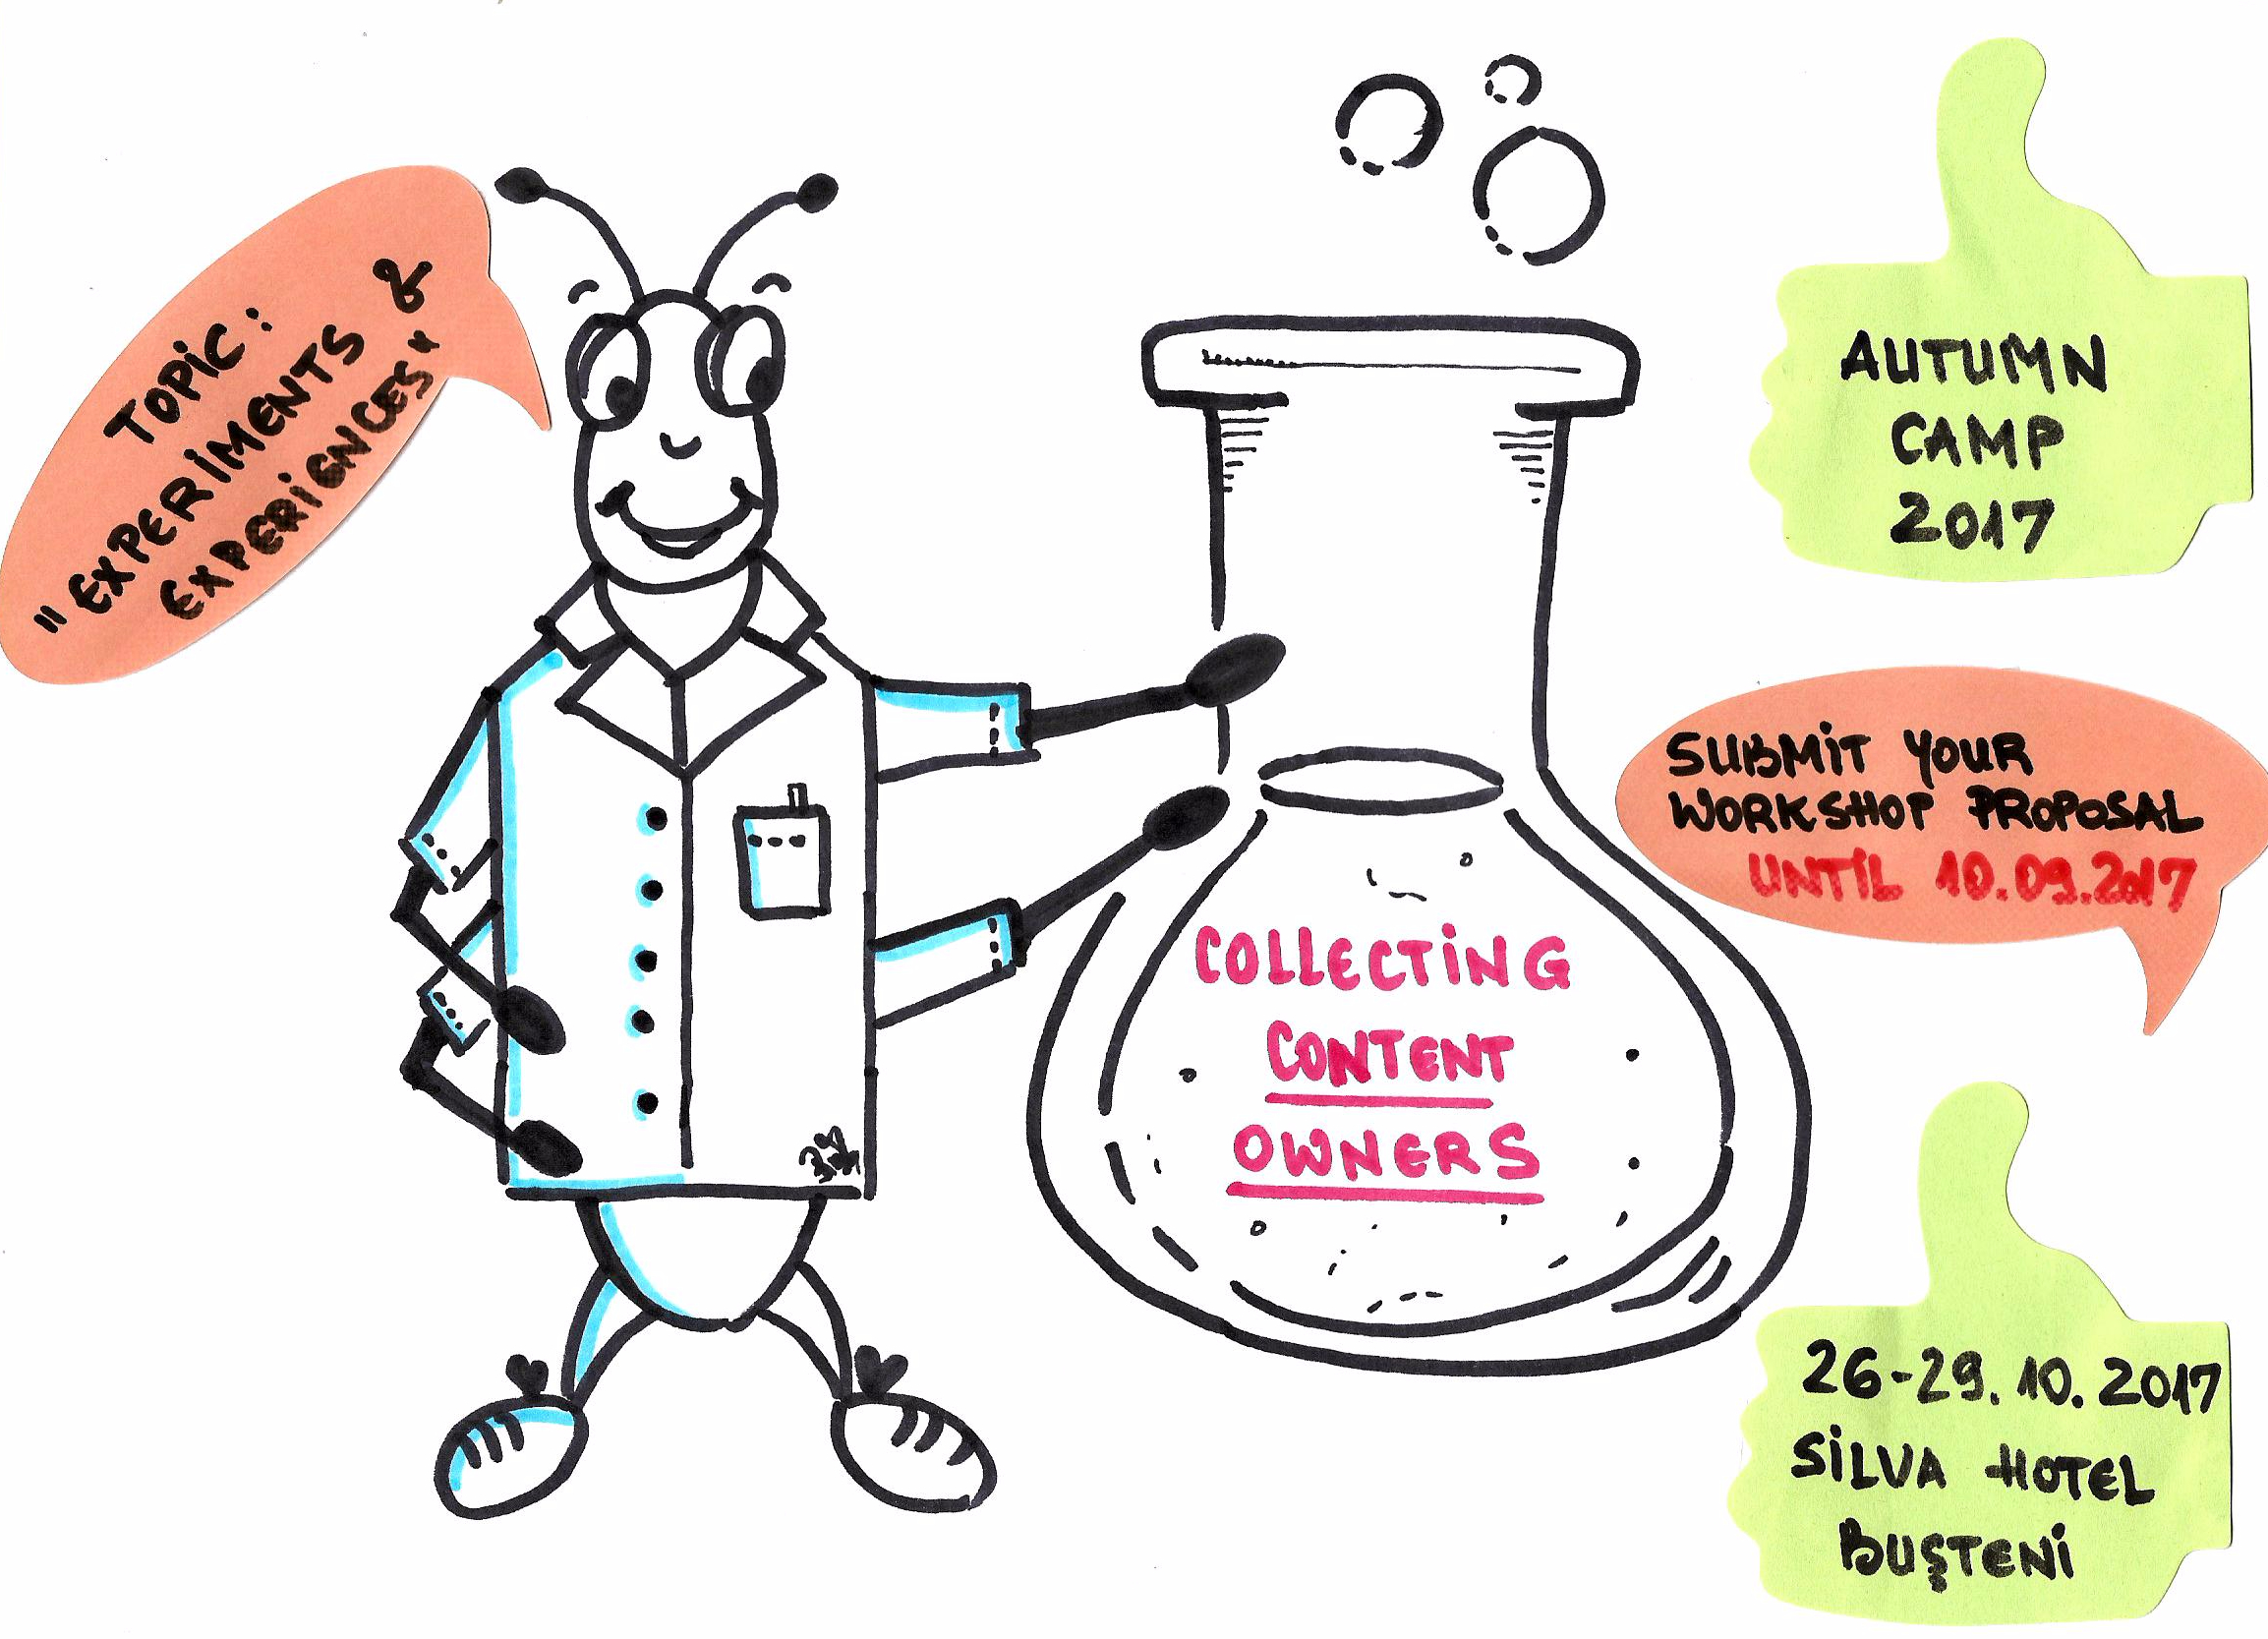 TOPIC:
"EXPERIMENTS &
EXPERIENCES"
AUTUMN
CAMP
2017
SUBMIT YOUR
WORKSHOP PROPOSAL
UNTIL 10.09.2017
COLLECTING
CONTENT
OWNERS
26-29.10.2017
SILVA HOTEL
BUŞTENI